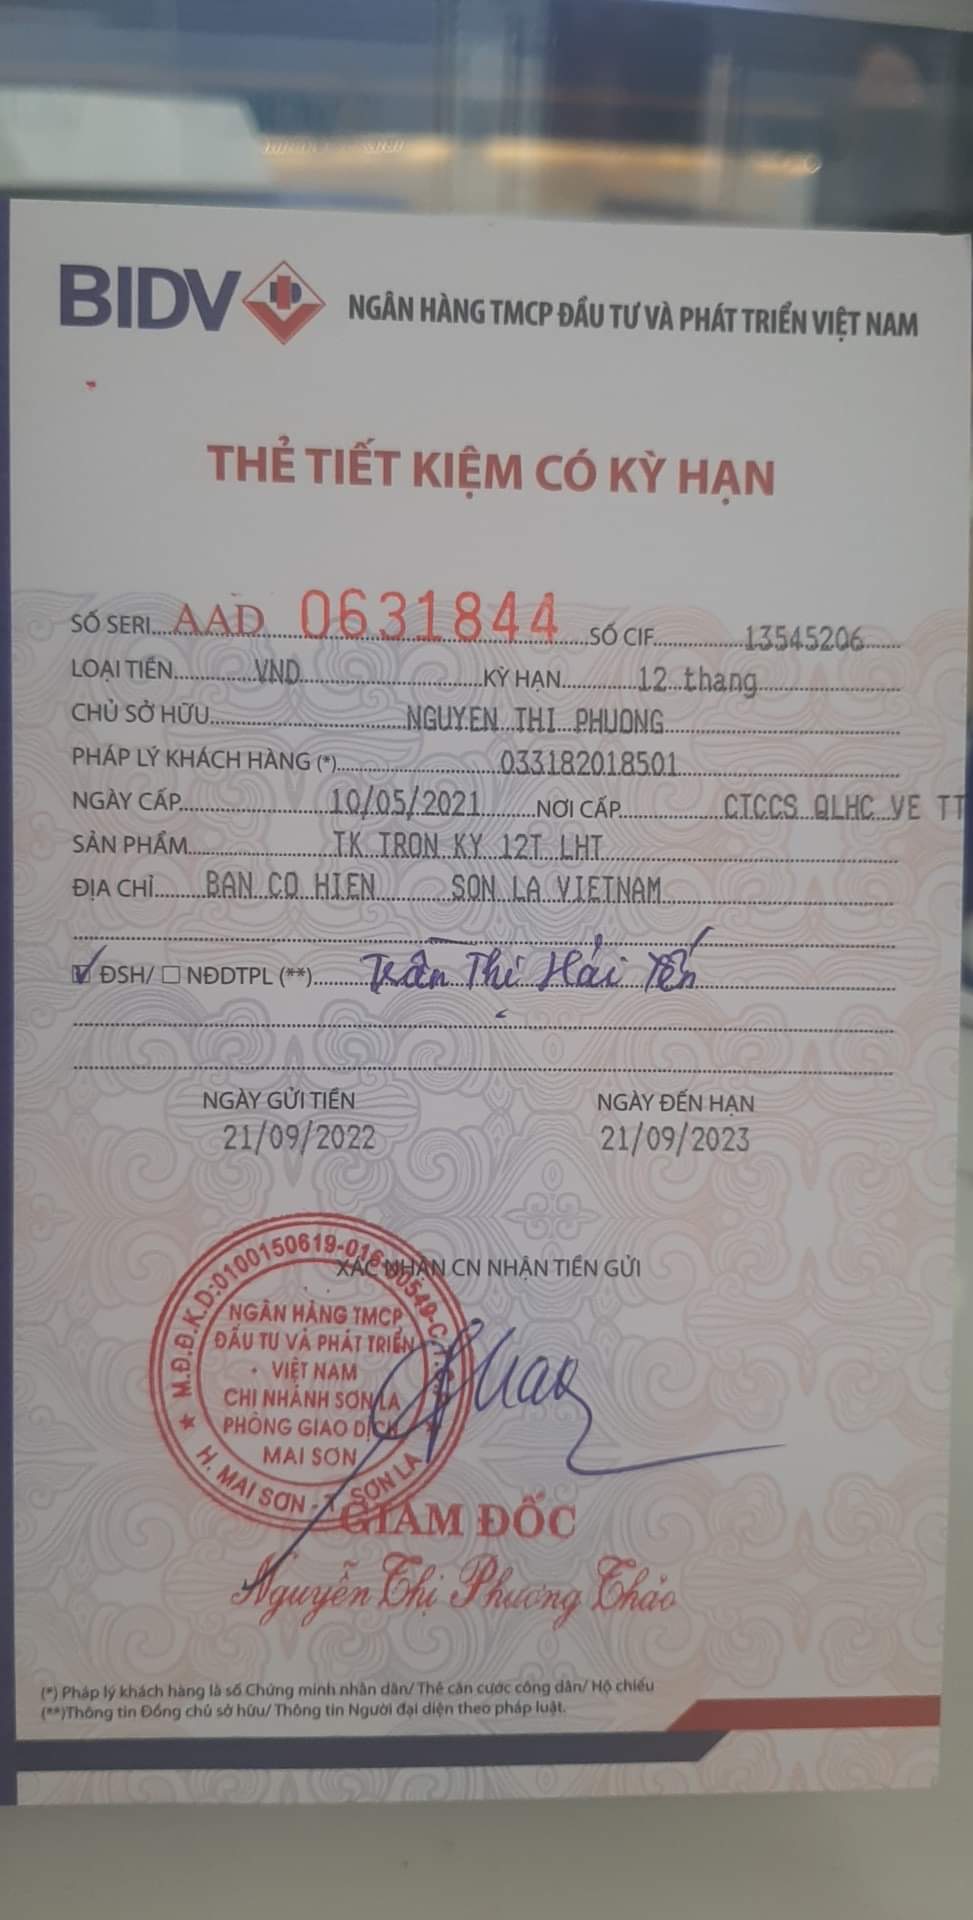 BIDV NGÂN HÀNG TMCP ĐẦU TƯ VÀ PHÁT TRIỂN VIỆT NAM
THẺ TIẾT KIỆM CÓ KỲ HẠN
SỐ SERI AAD 0631844 SỐ CIF 13545206
LOẠI TIỀN VND KỲ HẠN 12 thang
CHỦ SỞ HỮU NGUYEN THI PHUONG
PHÁP LÝ KHÁCH HÀNG (*) 033182018501
NGÀY CẤP 10/05/2021 NƠI CẤP CTCCS QLHC VE TT
SẢN PHẨM TK TRON KY 12T LHT
ĐỊA CHỈ BAN CO HIEN SON LA VIETNAM
ĐSH/ NĐDTPL (**) Trần Thị Hải Yến
NGÀY GỬI TIỀN NGÀY ĐẾN HẠN
21/09/2022 21/09/2023
XÁC NHẬN CN NHẬN TIỀN GỬI
M.Đ.Đ.K.D:0100150619-016
NGÂN HÀNG TMCP
ĐẦU TƯ VÀ PHÁT TRIỂN
VIỆT NAM
CHI NHÁNH SƠN LA
PHÒNG GIAO DỊCH
MAI SƠN
H. MAI SƠN - T. SƠN LA
GIÁM ĐỐC
Nguyễn Thị Phương Thảo
(*) Pháp lý khách hàng là số Chứng minh nhân dân/ Thẻ căn cước công dân/ Hộ chiếu
(**)Thông tin Đồng chủ sở hữu/ Thông tin Người đại diện theo pháp luật.